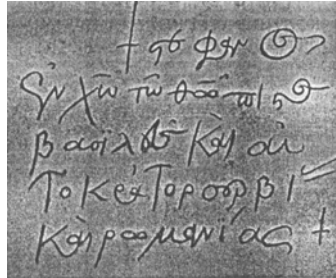 + στέφαν ος
ἐν χῶ τῶ θῶ πιστὸς
βασϊλεὺς καὶ αὐ
τοκράτορ σερβΐ
καὶ ρωμανΐας +